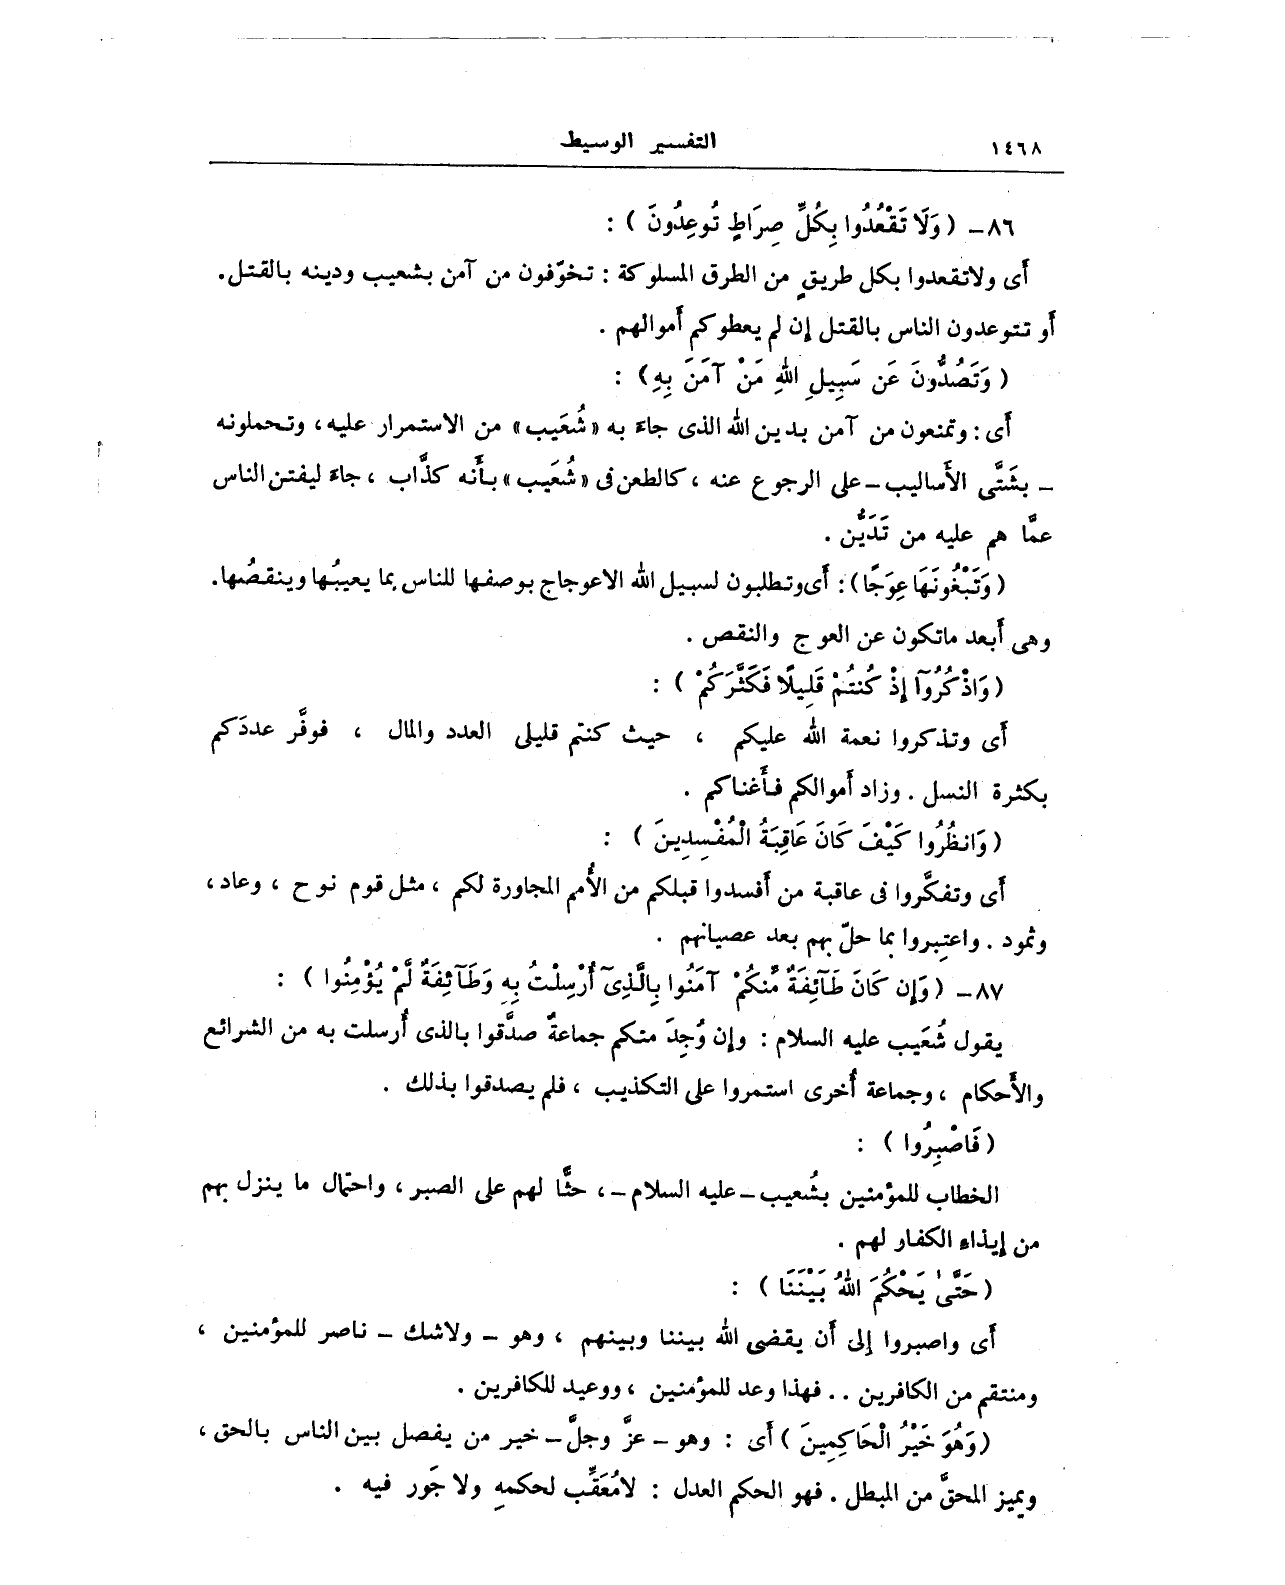 ١٤٦٨ التفسير الوسيط
٨٦ـ ( وَلَا تَقْعُدُوا بِكُلِّ صِرَاطٍ تُوعِدُونَ ) :
أَى ولاتقعدوا بكل طريقٍ من الطرق المسلوكة : تخوّفون من آمن بشعيب ودينه بالقتل .
أَو تتوعدون الناس بالقتل إن لم يعطوكم أَموالهم .
( وَتَصُدُّونَ عَن سَبِيلِ اللهِ مَنْ آمَنَ بِهِ ) :
أَى : وتمنعون من آمن بدين الله الذى جاءَ به «شُعَيب» من الاستمرار عليه ، وتحملونه
ـ بشَتَّى الأَساليب ـ على الرجوع عنه ، كالطعن فى «شُعَيب» بأَنه كذَّاب ، جاءَ ليفتن الناس
عمَّا هم عليه من تَدَيُّن .
( وَتَبْغُونَهَا عِوَجًا ) : أَى وتطلبون لسبيل الله الاعوجاج بوصفها للناس بما يعيبُها وينقصُها .
وهى أَبعد ماتكون عن العوج والنقص .
( وَاذْكُرُوٓا إِذْ كُنتُمْ قَلِيلًا فَكَثَّرَكُمْ ) :
أَى وتذكروا نعمة الله عليكم ، حيث كنتم قليلى العدد والمال ، فوفَّر عددَكم
بكثرة النسل . وزاد أَموالكم فأَغناكم .
( وَانظُرُوا كَيْفَ كَانَ عَاقِبَةُ الْمُفْسِدِينَ ) :
أَى وتفكَّروا فى عاقبة من أَفسدوا قبلكم من الأُمم المجاورة لكم ، مثل قوم نوح ، وعاد ،
وثمود . واعتبِروا بما حلّ بهم بعد عصيانهم .
٨٧ـ ( وَإِن كَانَ طَآئِفَةٌ مِّنكُمْ آمَنُوا بِالَّذِىٓ أُرْسِلْتُ بِهِ وَطَآئِفَةٌ لَّمْ يُؤْمِنُوا ) :
يقول شُعَيب عليه السلام : وإن وُجِدَ منكم جماعةٌ صدَّقوا بالذى أُرسلت به من الشرائع
والأَحكام ، وجماعة أُخرى استمروا على التكذيب ، فلم يصدقوا بذلك .
( فَاصْبِرُوا ) :
الخطاب للمؤمنين بشُعيب ـ عليه السلام ـ ، حثًّا لهم على الصبر ، واحتمال ما ينزل بهم
من إيذاءِ الكفار لهم .
( حَتَّىٰ يَحْكُمَ اللهُ بَيْنَنَا ) :
أَى واصبروا إلى أَن يقضى الله بيننا وبينهم ، وهو ـ ولاشك ـ ناصر للمؤمنين ،
ومنتقم من الكافرين .. فهذا وعد للمؤمنين ، ووعيد للكافرين .
( وَهُوَ خَيْرُ الْحَاكِمِينَ ) أَى : وهو ـ عزَّ وجلَّ ـ خير من يفصل بين الناس بالحق ،
ويميز المحقَّ من المبطل . فهو الحكم العدل : لامُعَقِّب لحكمهِ ولا جَور فيه .